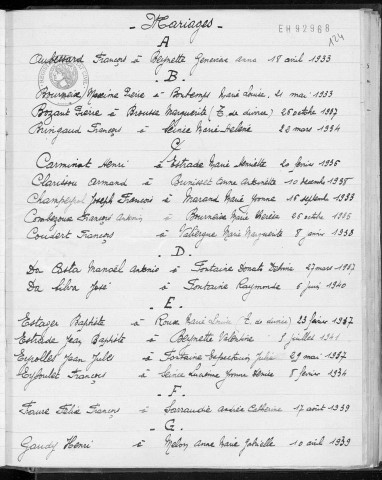 - Mariages -
EH 92968
124
- A -
Aubessard François à Peynette Geneviève Anna 18 avril 1933
- B -
Bournaise Maxime Pierre à Bontemps Marie Louise, 21 mai 1933
Bozant Pierre à Brousse Marguerite (E. de divorce) 26 octobre 1937
Bringaud François à Marie Hélène 22 mars 1934
- C -
Carminot Henri à Estrade Marie Henriette 20 février 1936
Clarissou Armand à Antoinette 10 décembre 1938
Joseph François à Marand Marie Yvonne 16 septembre 1933
Combezoux François Antonin à Bournaise Marie Thérèse 26 octobre 1935
Coudert François à Valergue Marie Marguerite 8 janvier 1938
- D -
Da Costa Manoël Antonio à Fontaine 27 mars 1937
Da Silva José à Fontaine Raymonde 6 juin 1940
- E -
Estager Baptiste à Marie Louise (E. de divorce) 23 février 1937
Estrade Jean Baptiste à Peynette Valentine 5 juillet 1941
Eyrolles Jean Jules à Fontaine Julie 29 mai 1937
François à Yvonne Denise 8 février 1934
- F -
Faure Félix François à Andrée Catherine 17 août 1939
- G -
Gaudy Henri à Melon Anne Marie Gabrielle 10 avril 1939